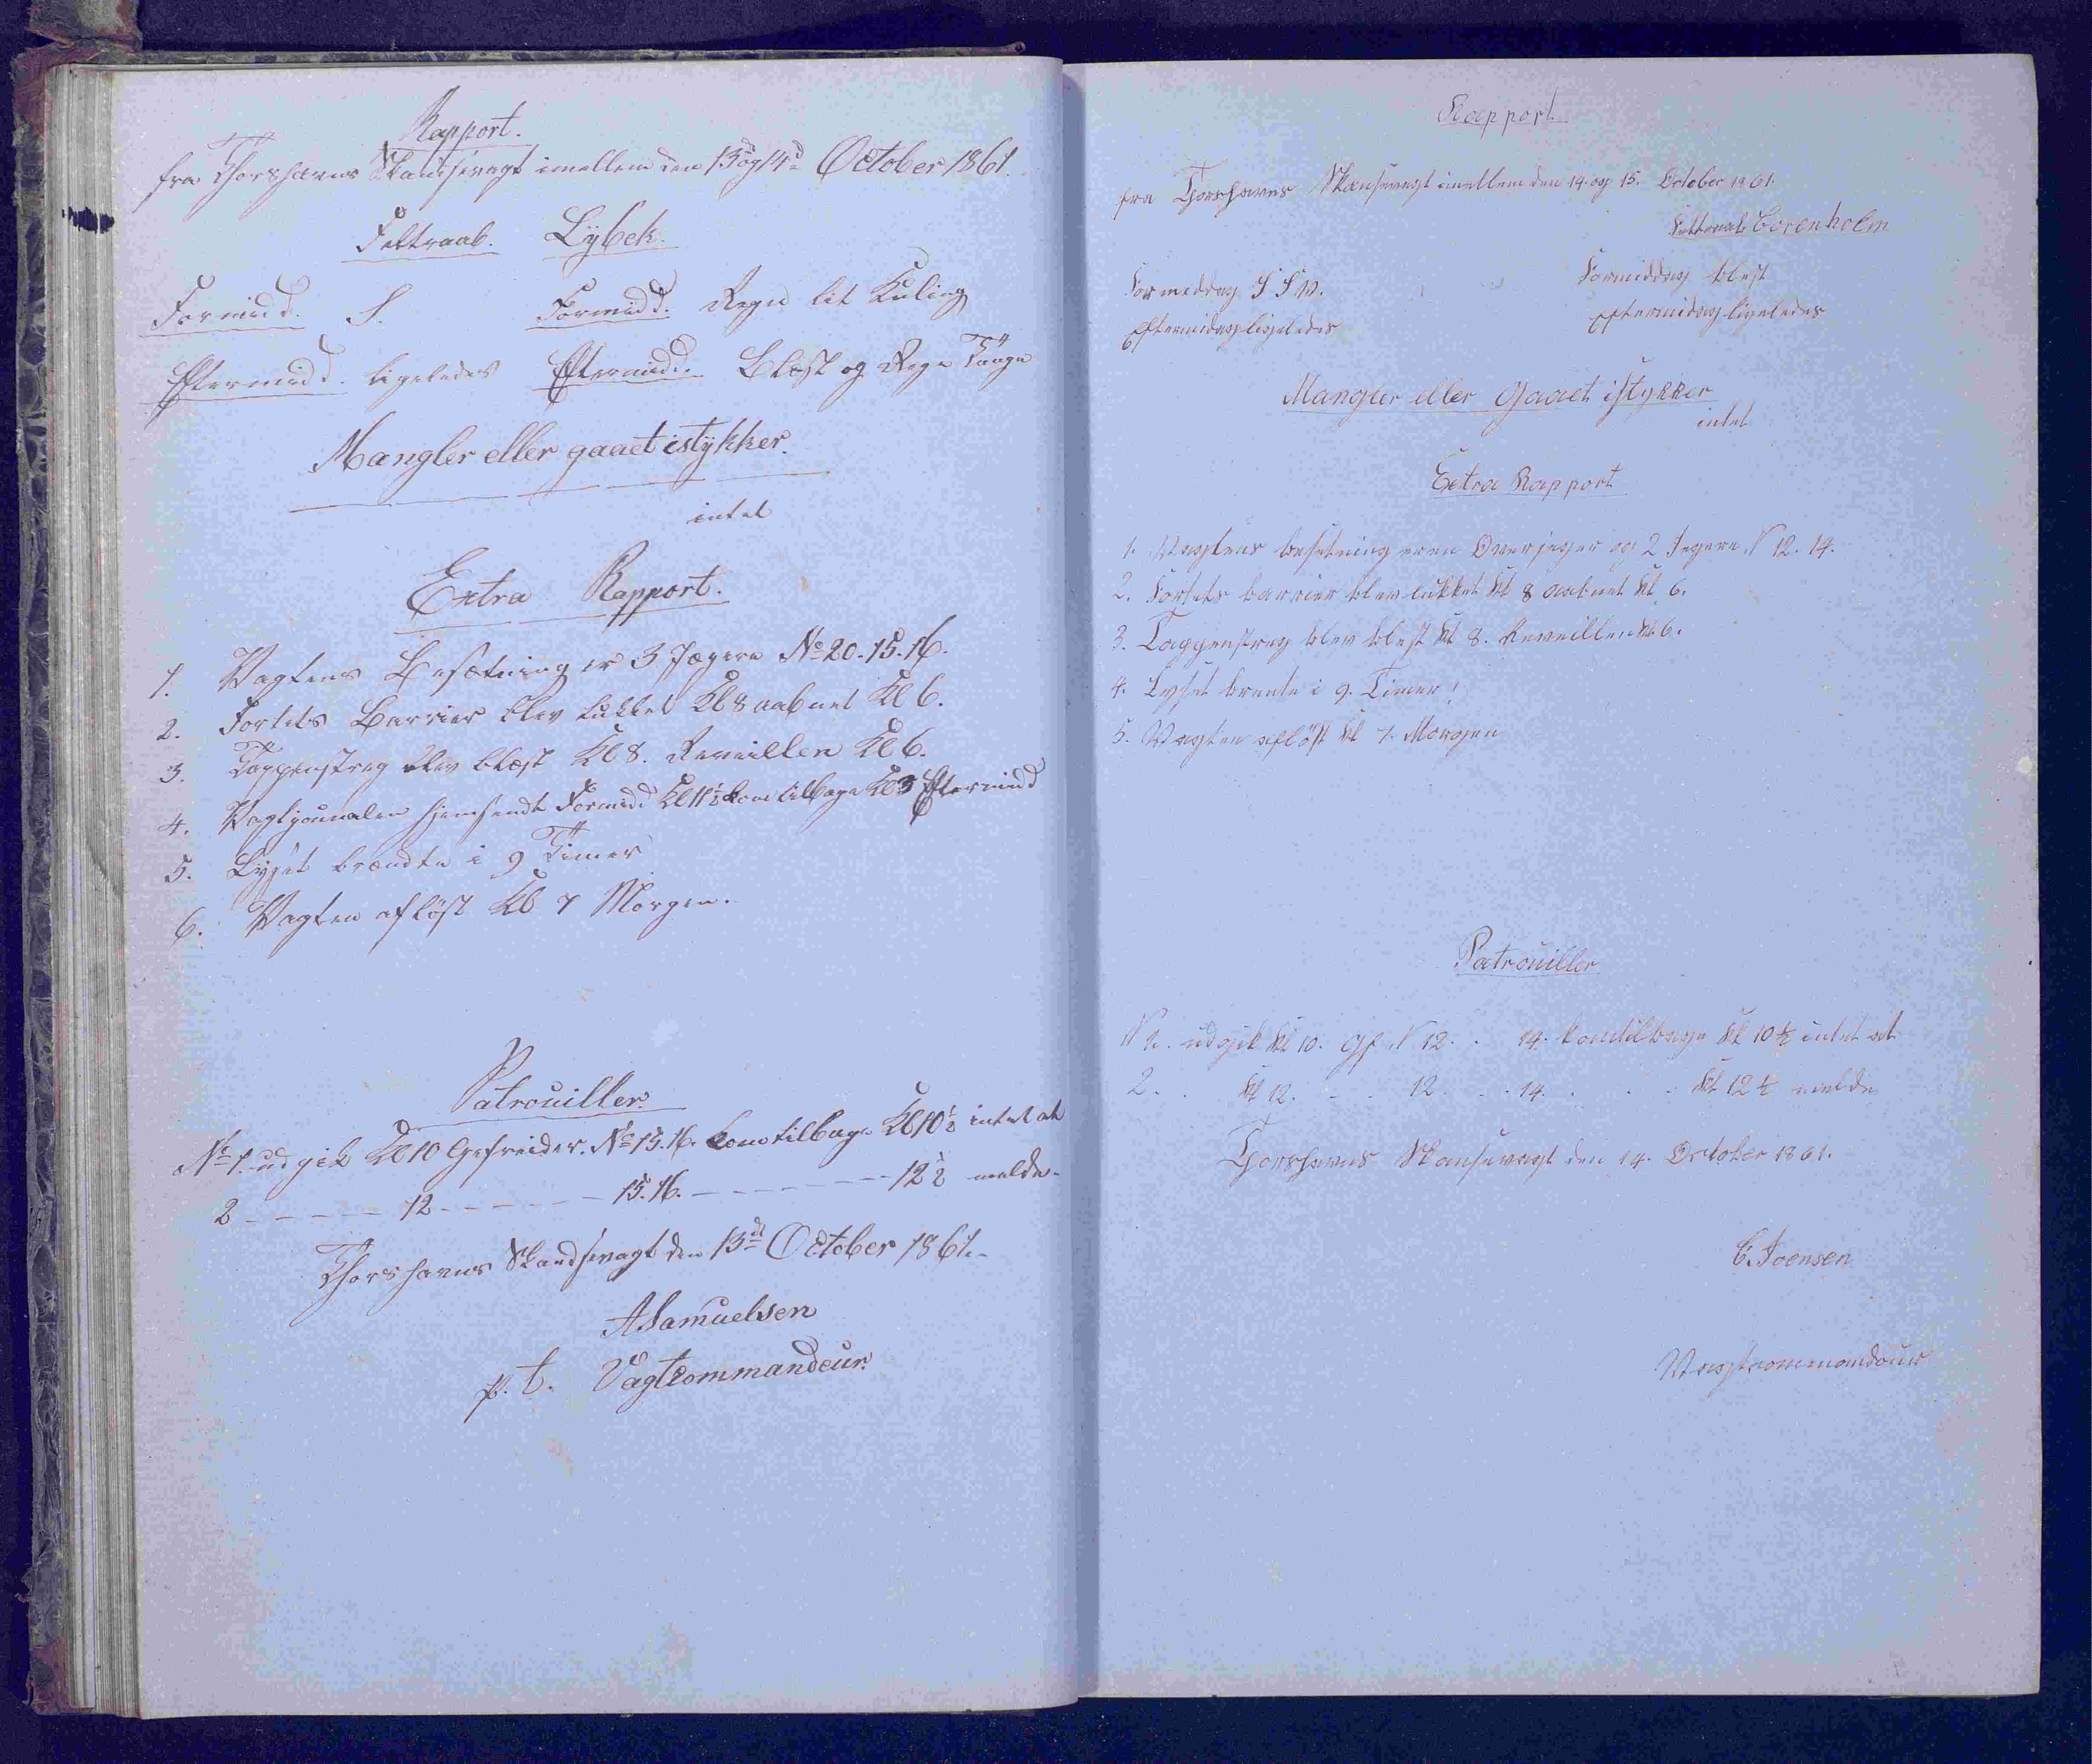 Rapport.
fra Thorshavns Skandsevagt imellem den 13 og 14d October 1861.
Feltraab. Lÿbek.
Formidd. S. Formidd. Regn lit Kuling
Eftermidd. ligeledes Eftermidd. Blæst og Regn
Mangler eller gaaet istÿkker.
intet
Extra Rapport.
1. Vagtens Besætning er 3 Jægere No 20. 15. 16.
2. Fortets Barrier blev lukket Kl 8 aabnet Kl 6.
3. Tappenstreg blev blæst Kl 8. Reveillen Kl 6.
4. Vagtjournalen hjemsendt Formidd Kl 11½ kom tilbage Kl 3 Eftermidd
5. Lÿset brændte i 9 Timer
6. Vagten afløst Kl 7 Morgen.
Patrouiller.
No 1. udgik Kl 10 Gefreider. No 15. 16. kom tilbage Kl 10½ intet at
2 - - - - - 12 - - - - - 15. 16. - - - - - - 12½ melde.
Thorshavns Skandsevagt den 13de October 1861.
A Samuelsen
p. t. Vagtcommandeur.
Rapport
fra Thorshavns Skansevagt imellem den 14. og 15. October 1861.
Feltraab Borenholm
Formeddag S S W. Formiddag blest
Eftermidag ligeledes Eftermidag ligeledes
Mangler eller Gaaet istykker
intet
Extra Rapport
1. Vagtens besetning er en Overjeger og 2 Jegere N 12. 14.
2. Fortets barrier blev lukket Kl 8 aabnet Kl 6.
3. Tappenstreg blev blest Kl 8. Reveillen Kl 6.
4. Lyset brente i 9. Timer
5. Vagten afløst Kl 7. Morgen
Patrouiller
N 1. udgik Kl 10. Gf. N 12. . 14. kom tilbage Kl 10½ intet at
2. . Kl 12. . . 12. . . 14. . . . Kl 12½ melde
Thorshavns Skansevagt den 14. October 1861.
C. Joensen
Vagtcommandeur